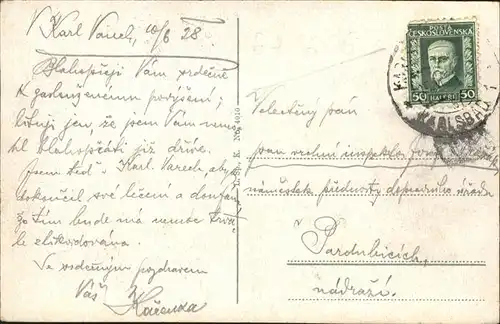 V Karl. Varech, 10/6 28.
Blahopřeji Vám srdečně
k zaslouženému povýšení;
lituji jen, že jsem Vám nemohl
blahopřáti již dříve.
Jsem teď v Karl. Varech, abych
dokončil své léčení a doufám,
že tím bude má nemoc trva-
le zlikvidována.
Se srdečným pozdravem
Váš
N. K. No. 4010
POŠTA
ČESKOSLOVENSKÁ
50 HALÉŘŮ 50
KARLSBAD 1
Velectěný pán
pan vrchní inspektor
náměstek přednosty dopravního úřadu
Pardubicích,
nádraží.